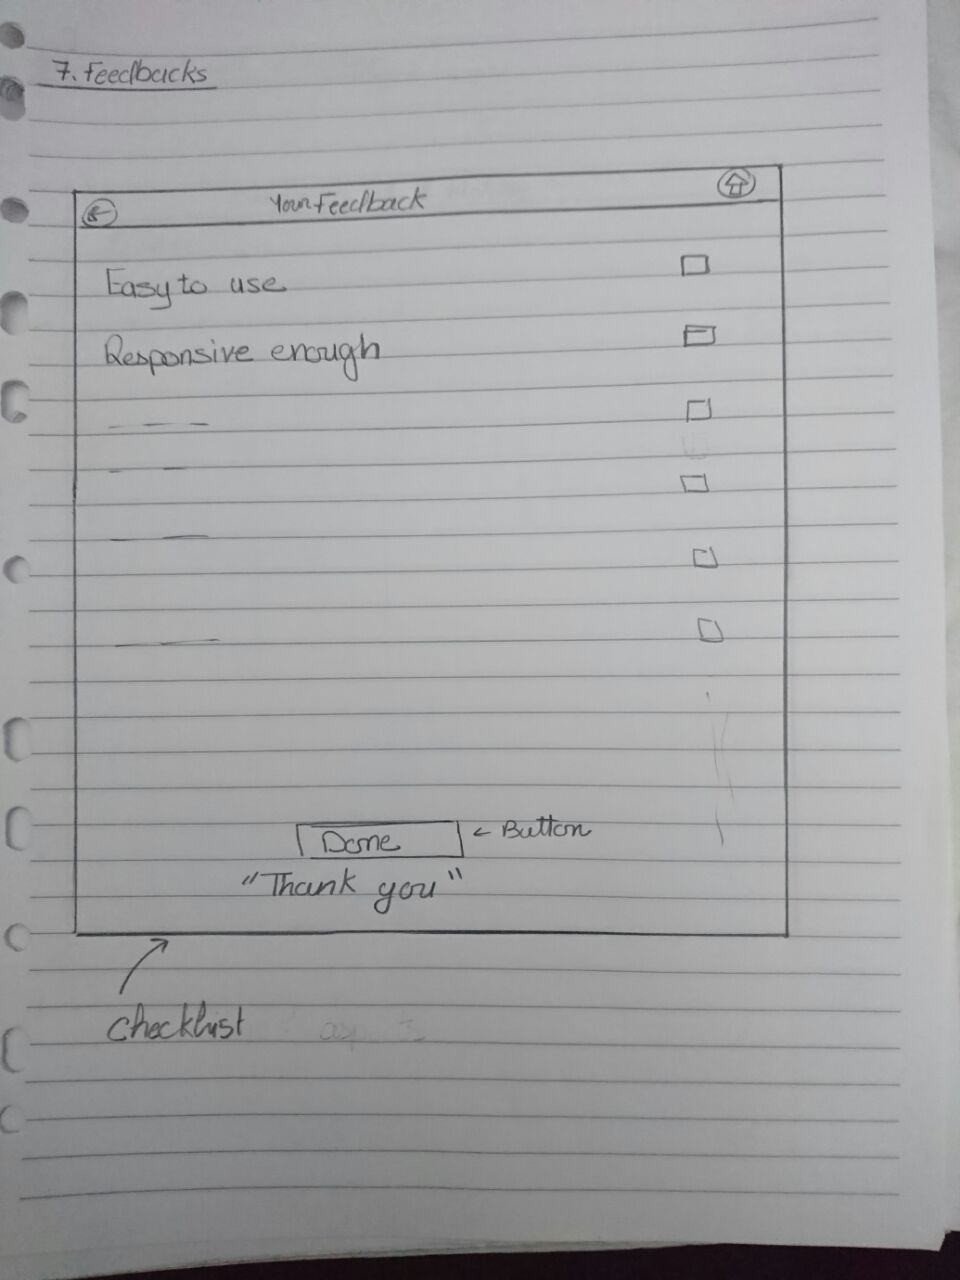 7. Feedbacks
Your Feedback
Easy to use
Responsive enough
Done
← Button
"Thank you"
Checklist